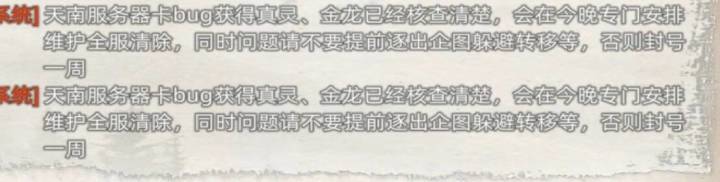 系统]天南服务器卡bug获得真灵、金龙已经核查清楚，会在今晚专门安排
维护全服清除，同时问题请不要提前逐出企图躲避转移等，否则封号
一周
系统]天南服务器卡bug获得真灵、金龙已经核查清楚，会在今晚专门安排
维护全服清除，同时问题请不要提前逐出企图躲避转移等，否则封号
一周